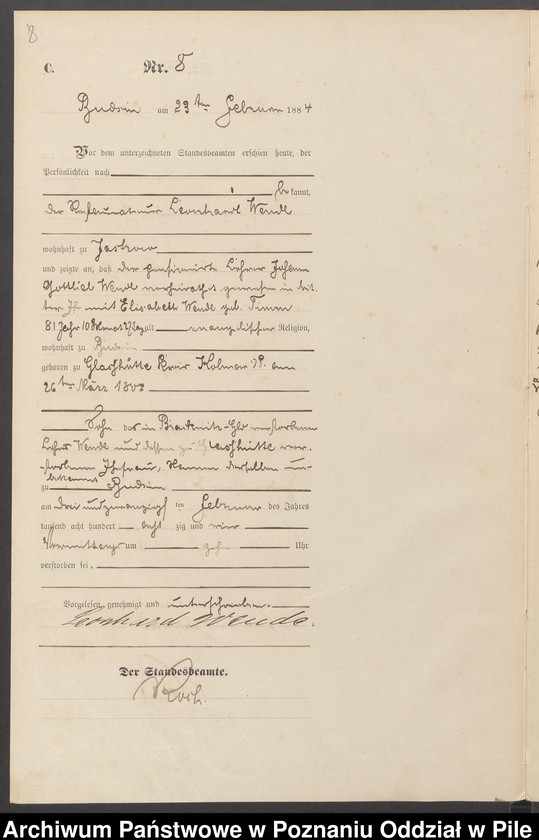 8
C. Nr. 8
Budsin am 23ten Februar 1884
Vor dem unterzeichneten Standesbeamten erschien heute, der
Persönlichkeit nach
bekannt,
der Restaurateur Leonhardt Wende
wohnhaft zu Jastrow
und zeigte an, daß der pensionirte Lehrer Johann
Gottlieb Wende verheirathet gewesen in
ter Ehe mit Elisabeth Wende geb. Timm
81 Jahr 10 Monat alt evangelischer Religion,
wohnhaft zu Budsin
geboren zu Glashütte Kreis Kolmar P. am
26ten März 1802
Sohn des in verstorbenen
Lehrer Wende und dessen zu Glashütte ver-
storbenen Ehefrau, Namen derselben un-
bekannt
zu Budsin
am drei und zwanzigsten Februar des Jahres
tausend acht hundert achtzig und vier
Vormittags um zehn Uhr
verstorben sei.
Vorgelesen, genehmigt und unterschrieben.
Leonhard Wende.
Der Standesbeamte.
Koch.
Archiwum Państwowe w Poznaniu Oddział w Pile